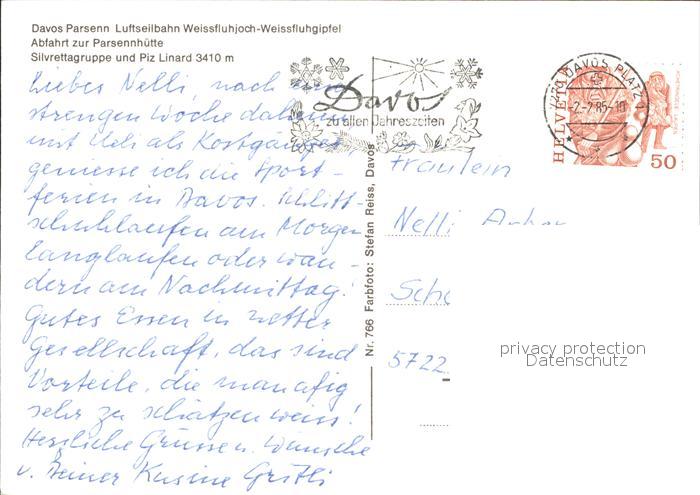 Davos Parsenn Luftseilbahn Weissfluhjoch-Weissfluhgipfel
Abfahrt zur Parsennhütte
Silvrettagruppe und Piz Linard 3410 m
Liebes Nelli, nach
strengen Woche
mit Ueli als Kostgänger
geniesse ich die Sport-
ferien in Davos. Schlitt-
schuhlaufen am Morgen
Langlaufen oder wan-
dern am Nachmittag!
Gutes Essen in netter
Gesellschaft, das sind
Vorteile, die man
sehr zu schätzen weiss!
Herzliche Grüsse u. Wünsche
v. Deiner Kusine Gritli
Davos
zu allen Jahreszeiten
7270 DAVOS PLATZ 1
-2.-2.85-10
HELVETIA
50
Nr. 766 Farbfoto: Stefan Reiss, Davos
Fräulein
Nelli
5722
privacy protection
Datenschutz